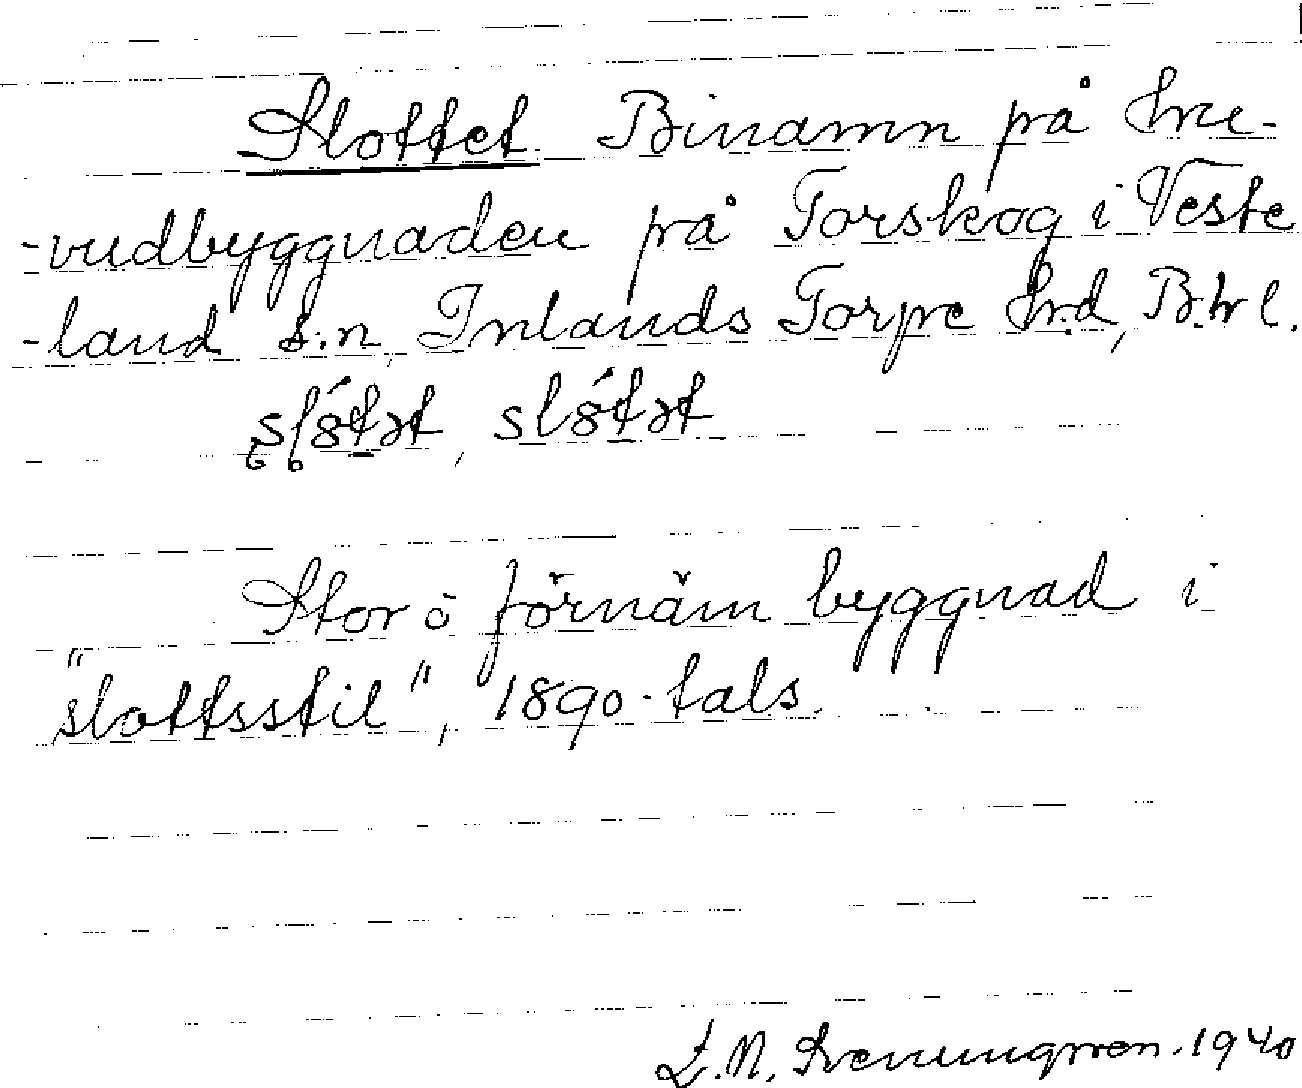 Slottet Binamn på hu-
-vudbyggnaden på Torskog i Veste
-land s:n, Inlands Torpe hrd, B.hl.
slótət, slótət
Stor o förnäm byggnad i
"slottsstil", 1890-tals.
1940